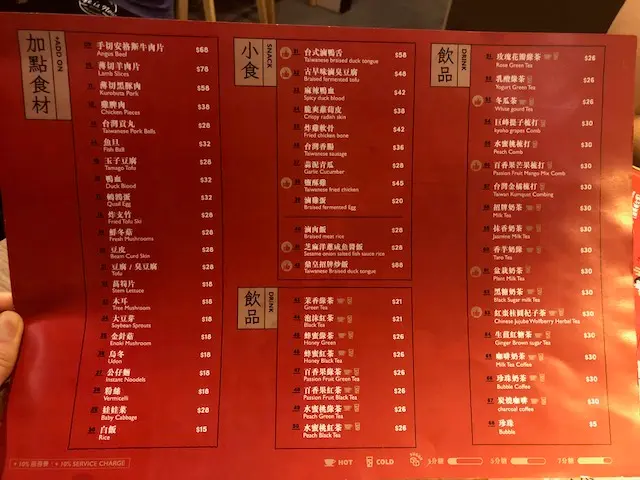 加點食材
+ADD ON
手切安格斯牛肉片 $68
Angus Beef
薄切羊肉片 $78
Lamb Slices
薄切黑豚肉 $58
Kurobuta Pork
雞脾肉 $38
Chicken Pieces
台灣貢丸 $28
Taiwanese Pork Balls
魚旦 $32
Fish Ball
玉子豆腐 $28
Tamago Tofu
鴨血 $32
Duck Blood
鵪鶉蛋 $32
Quail Egg
炸支竹 $28
Fried Tofu Ski
鮮冬菇 $28
Fresh Mushrooms
豆皮 $28
Bean Curd Skin
豆腐 / 臭豆腐 $28
Tofu
萵筍片 $18
Stem Lettuce
木耳 $18
Tree Mushroom
大豆芽 $18
Soybean Sprouts
金針菇 $18
Enoki Mushroom
烏冬 $18
Udon
公仔麵 $18
Instant Noodels
粉絲 $18
Vermicelli
娃娃菜 $28
Baby Cabbage
白飯 $15
Rice
+ 10% 服務費 / + 10% SERVICE CHARGE
小食
SNACK
台式滷鴨舌 $58
Taiwanese braised duck tongue
古早味滷臭豆腐 $48
Braised fermented tofu
麻辣鴨血 $42
Spicy duck blood
脆爽蘿蔔皮 $38
Crispy radish skin
炸雞軟骨 $42
Fried chicken bone
台灣香腸 $36
Taiwanese sausage
蒜泥青瓜 $28
Garlic Cucumber
鹽酥雞 $45
Taiwanese fried chicken
滷雞蛋 $20
Braised fermented Egg
滷肉飯 $28
Braised meat rice
芝麻洋蔥咸魚醬飯 $28
Sesame onion salted fish sauce rice
鴨皇招牌炒飯 $88
Taiwanese Braised duck tongue
飲品
DRINK
茉香綠茶 $21
Green Tea
泡沫紅茶 $21
Black Tea
蜂蜜綠茶 $26
Honey Green
蜂蜜紅茶 $26
Honey Black Tea
百香果綠茶 $26
Passion Fruit Green Tea
百香果紅茶 $26
Passion Fruit Black Tea
水蜜桃綠茶 $26
Peach Green Tea
水蜜桃紅茶 $26
Peach Black Tea
飲品
DRINK
玫瑰花瓣綠茶 $26
Rose Green Tea
乳酸綠茶 $26
Yogurt Green Tea
冬瓜茶 $36
White gourd Tea
巨峰提子梳打 $30
kyoho grapes Comb
水蜜桃梳打 $30
Peach Comb
百香果芒果梳打 $30
Passion Fruit Mango Mix Comb
台灣金橘梳打 $30
Taiwan Kumquat Combing
招牌奶茶 $30
Milk Tea
抹香奶茶 $30
Jasmine Milk Tea
香芋奶綠 $30
Taro Tea
盆栽奶茶 $30
Plant Milk Tea
黑糖奶茶 $30
Black Sugar milk Tea
紅棗桂圓杞子茶 $30
Chinese Jujube Wolfberry Herbal Tea
生薑紅糖茶 $30
Ginger Brown sugar Tea
咖啡奶茶 $30
Milk Tea Coffee
珍珠奶茶 $30
Bubble Coffee
炭燒咖啡 $30
charcoal coffee
珍珠 $5
Bubble
HOT
COLD
3分甜
5分甜
7分甜